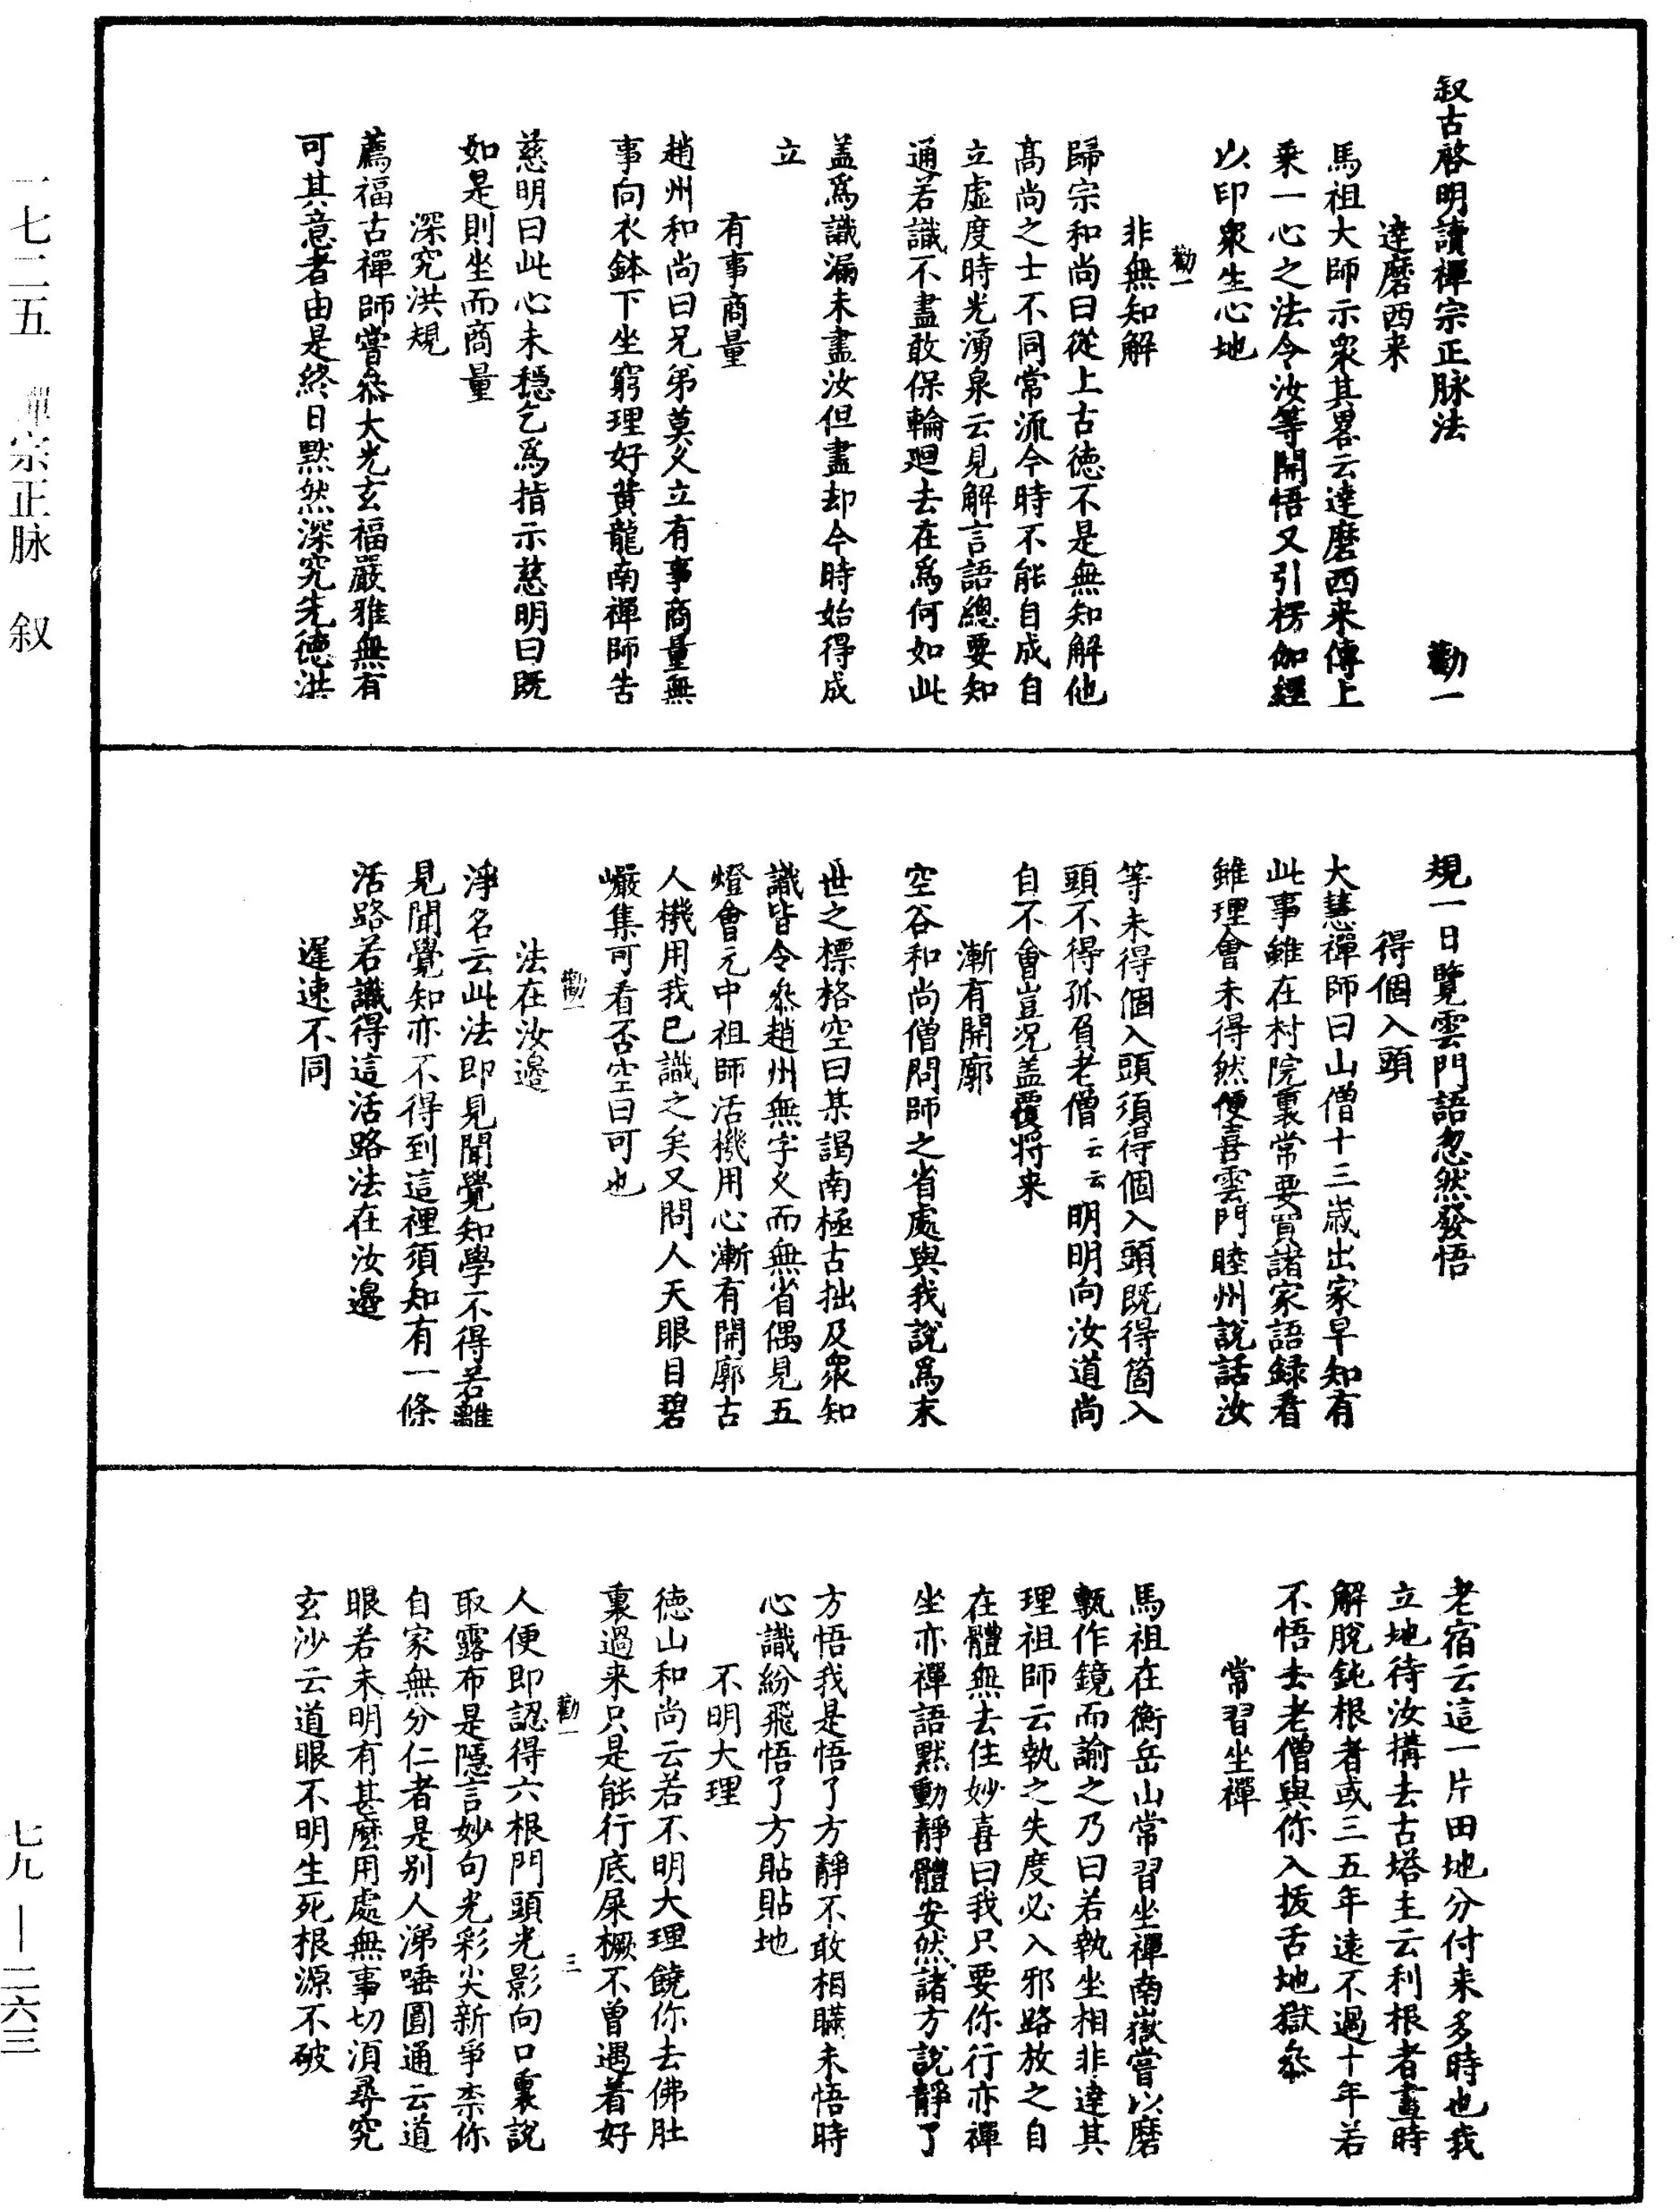 叙古啓明讀禪宗正脉法 勸一
達磨西来
馬祖大師示衆其畧云達磨西来傳上
乗一心之法令汝等開悟又引楞伽經
以印衆生心地
勸一
非無知解
歸宗和尚曰從上古徳不是無知解他
髙尚之士不同常流今時不能自成自
立虚度時光湧泉云見解言語緫要知
通若識不盡敢保輪廻去在爲何如此
盖爲識漏未盡汝但盡却今時始得成
立
有事商量
趙州和尚曰兄弟莫久立有事商量無
事向衣鉢下坐窮理好黄龍南禪師告
慈明曰此心未穏乞爲指示慈明曰既
如是則坐而商量
深究洪規
薦福古禪師嘗叅大光玄福嚴雅無有
可其意者由是終日黙然深究先徳洪
規一日覽雲門語忽然發悟
得個入頭
大慧禪師曰山僧十三歲出家早知有
此事雖在村院裏常要買諸家語録看
雖理會未得然便喜雲門睦州說話汝
等未得個入頭須得個入頭既得箇入
頭不得孤負老僧云云明明向汝道尚
自不會豈况盖覆將来
漸有開廓
空谷和尚僧問師之省處與我說爲末
世之標格空曰某謁南極古拙及衆知
識皆令叅趙州無字义而無省偶見五
燈會元中祖師活機用心漸有開廓古
人機用我已識之矣又問人天眼目碧
巖集可看否空曰可也
勸一
法在汝邊
淨名云此法即見聞覺知學不得若離
見聞覺知亦不得到這裡須知有一條
活路若識得這活路法在汝邊
遲速不同
老宿云這一片田地分付来多時也我
立地待汝搆去古塔主云利根者晝時
解脫鈍根者或三五年遠不過十年若
不悟去老僧與你入拔舌地獄叅
常習坐禪
馬祖在衡岳山常習坐禪南嶽嘗以磨
甎作鏡而諭之乃曰若執坐相非達其
理祖師云執之失度必入邪路放之自
在體無去住妙喜曰我只要你行亦禪
坐亦禪語黙動靜體安然諸方說靜了
方悟我是悟了方靜不敢相瞞未悟時
心識紛飛悟了方貼貼地
不明大理
徳山和尚云若不明大理饒你去佛肚
裏過来只是能行底屎橛不曽遇着好
勸一 三
人便即認得六根門頭光影向口裏說
取露布是隱言妙句光彩尖新爭柰你
自家無分仁者是别人涕唾圓通云道
眼若未明有甚麽用處無事切湏尋究
玄沙云道眼不明生死根源不破
一七二五 禪宗正脉 叙
七九 — 二六三